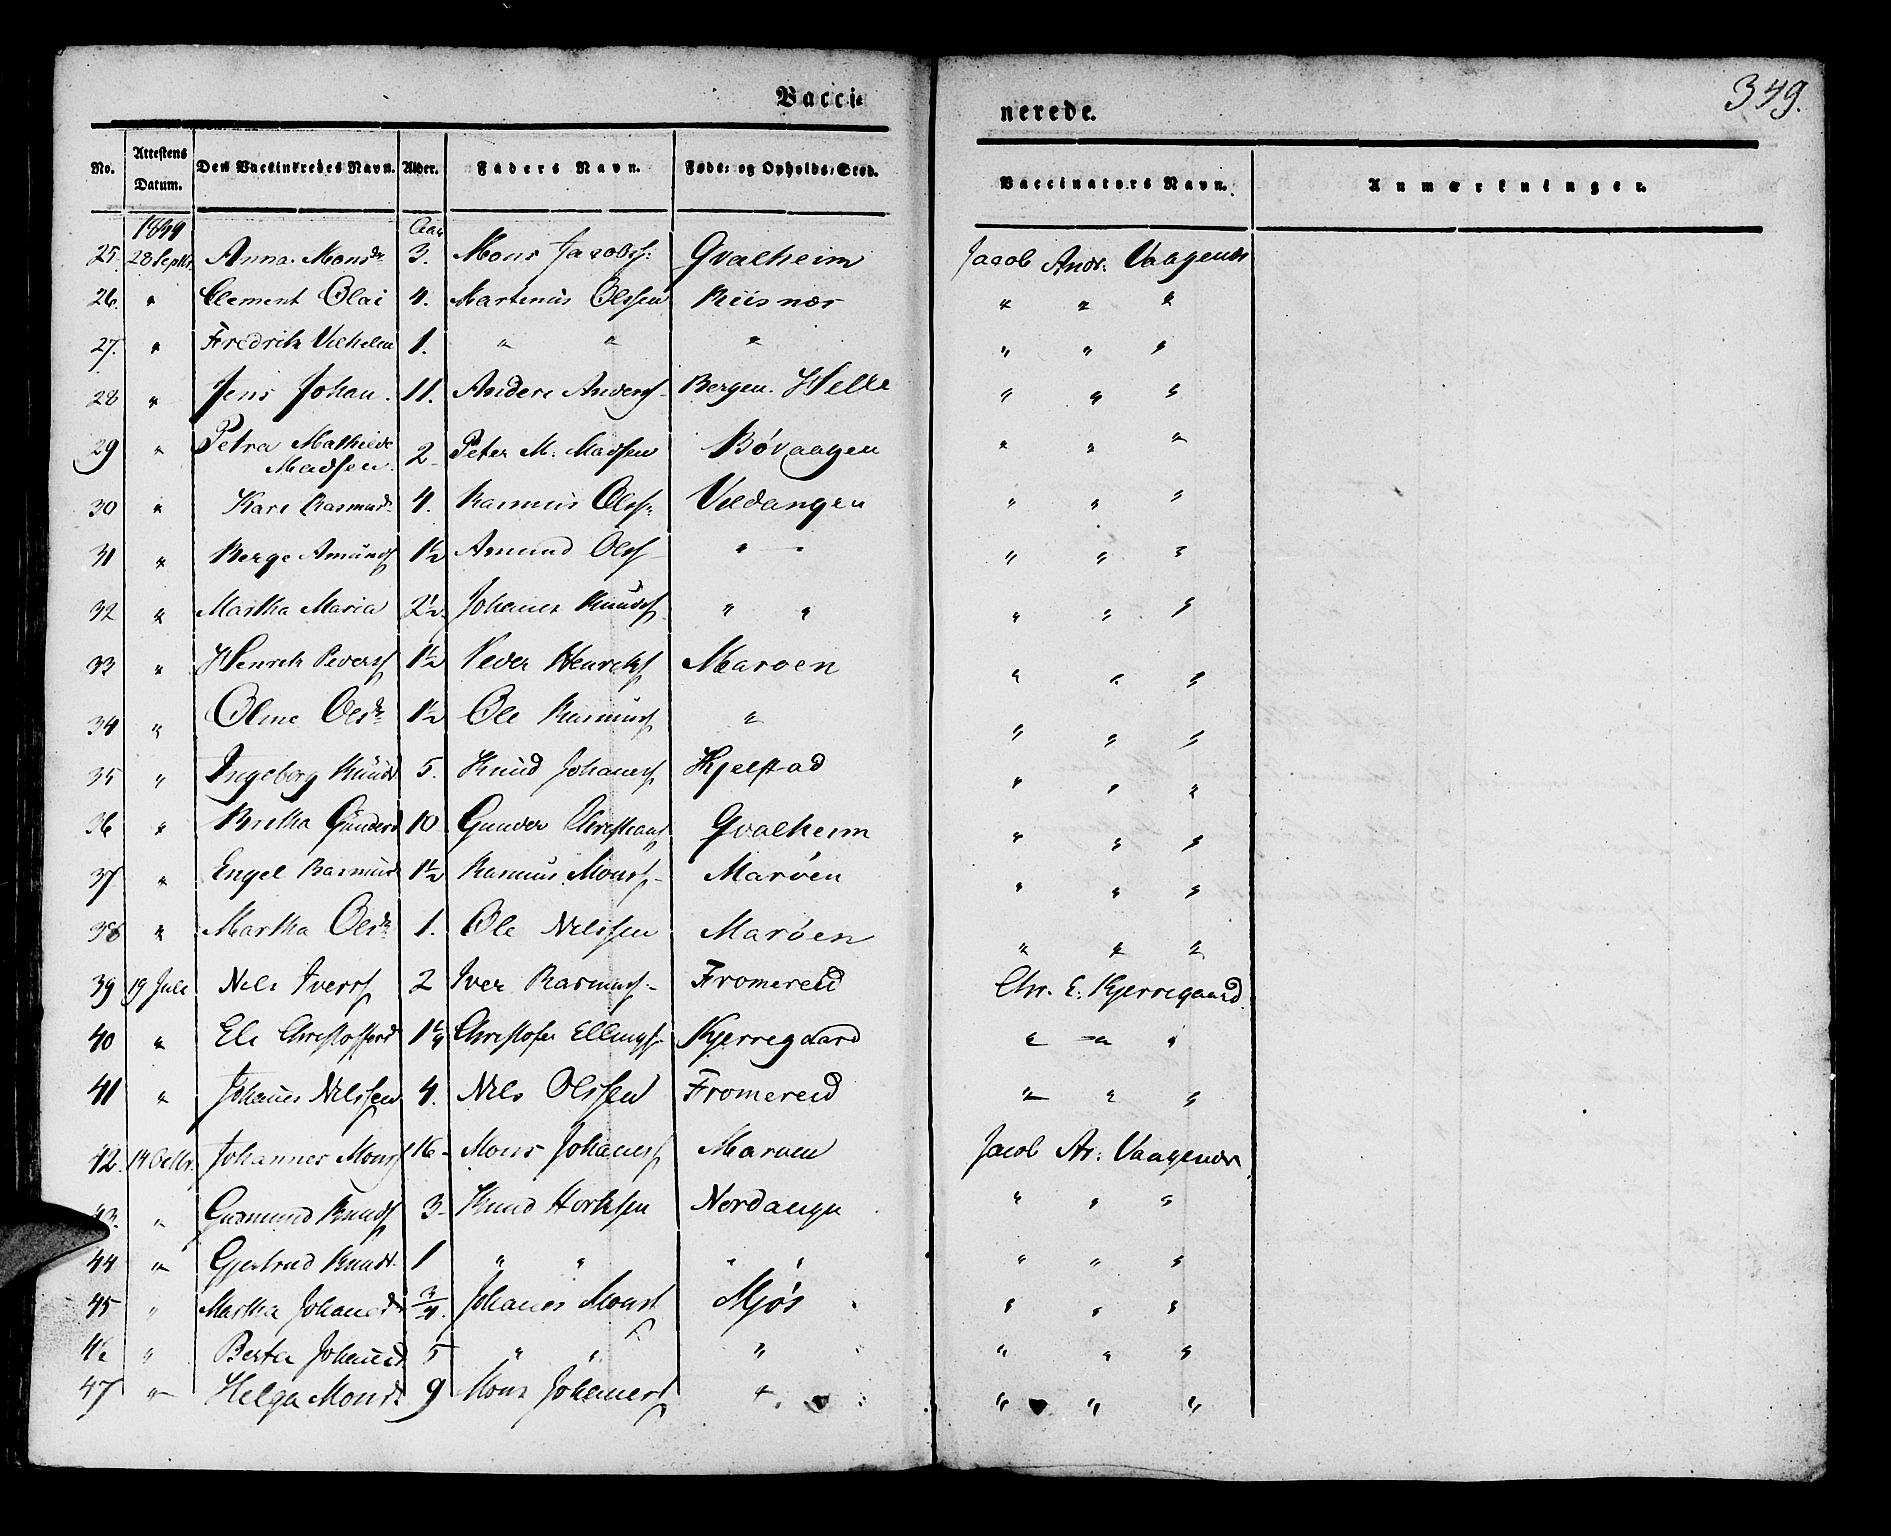 Vacci-
nerede.
349.
No. Attestens Datum. Den Vaccineredes Navn. Alder. Faders Navn. Føde- og Opholds-Sted. Vaccinators Navn. Anmærkninger.
25. 28 Septbr. Anna Monsdr 3. Mons Jacobs: Gvalheim Jacob Andr: Vaagenes
26. " Clement Olai 4. Martenus Olssen Riisnæs " " "
27. " Fredrik Vilhelm 1. " " " " " "
28 " Jens Johan. 11. Anders Anders Bergen. Helle " " "
29 " Petra Mathilde Madsen. 2 Peter M. Madsen Bøvaagen " " "
30 " Kari Rasmusd. 4. Rasmus Ols Vildangen " " "
31 " Berge Amunds 1½ Amund Ols " " " " "
32 " Martha Maria 2½ Johanes Knuds " " " " "
33 " Henrik Peders 1½ Peder Henriks Marøen " " "
34 " Oline Olsdr 1½ Ole Rasmus " " " "
35 " Ingeborg Knuds 5. Knud Johanes Hjelstad " " "
36 " Britha Gunders 10 Gunder Christians Gvalheim " " "
37 " Engel Rasmusd 1½ Rasmus Mons Marøen " " "
38 " Martha Olsdr 1. Ole Nilssen Marøen " " "
39 19 Juli Nils Ivers 2 Iver Rasmus Fromereid Chr. E. Kjerregaard
40 " Eli Christoffersd 1¼ Christofer Ellings Kjerregaard " " "
41 " Johanes Nilssen 4. Nils Olssen Fromereid " " "
42. 14 Octbr. Johannes Mons 16 Mons Johanes Marøen Jacob An: Vaagenes
43. " Gudmund Knuds 3 Knud Horksen Nordangen " " "
44 " Gjertrud Knudsd. 1 " " " " " " "
45 " Martha Johanesd. 3/4. Johanes Mons Mjøs " " "
46 " Berta Johanesd 5 " " " " " "
47 " Helga Monsd. 9 Mons Johanes " " " "